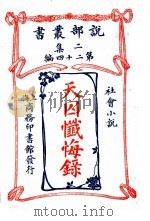 說部叢書
二集
第二十四編
社會小說
天囚懺悔錄
商務印書館發行